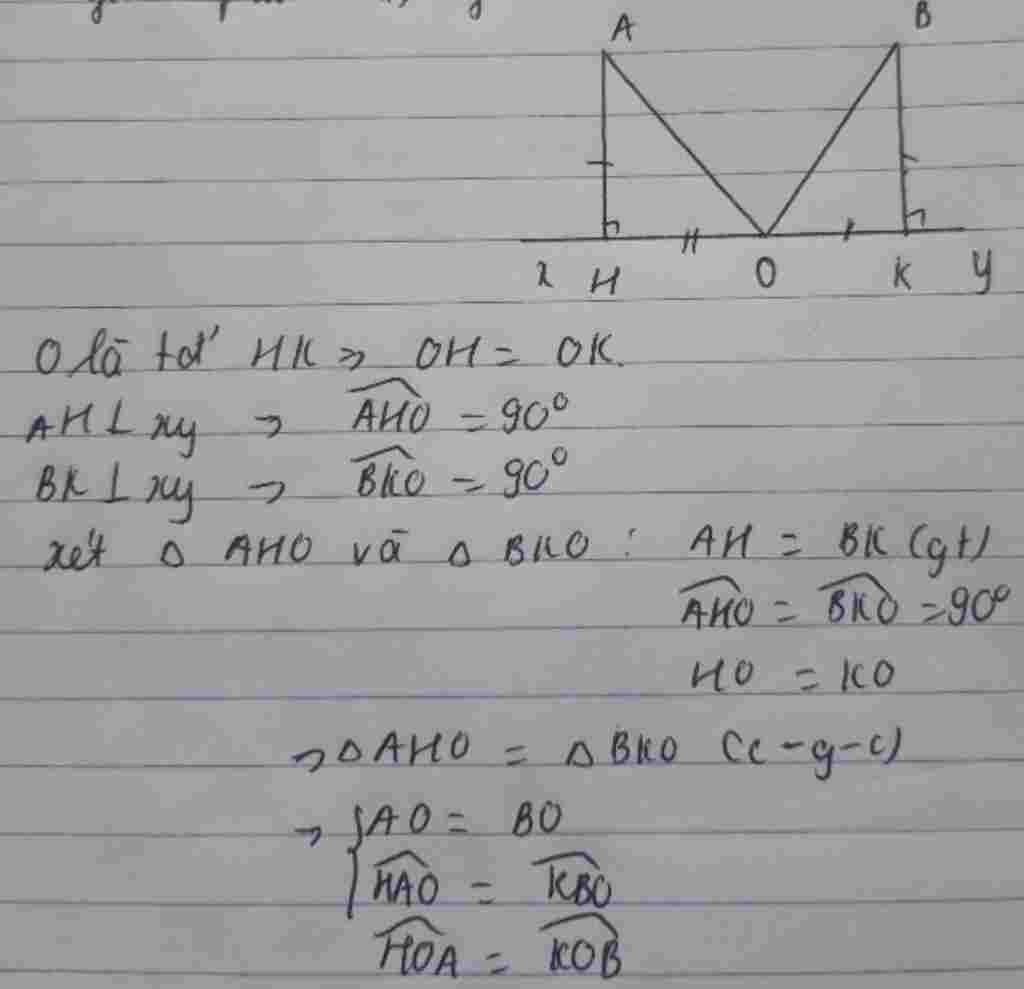 A B
x H O K y
O là tđ' HK => OH = OK.
AH ⊥ xy → \widehat{AHO} = 90°
BK ⊥ xy → \widehat{BKO} = 90°
xét Δ AHO và Δ BKO : AH = BK (gt)
\widehat{AHO} = \widehat{BKO} = 90°
HO = KO
→ Δ AHO = Δ BKO (c-g-c)
→ { AO = BO
\widehat{HAO} = \widehat{KBO}
\widehat{HOA} = \widehat{KOB}